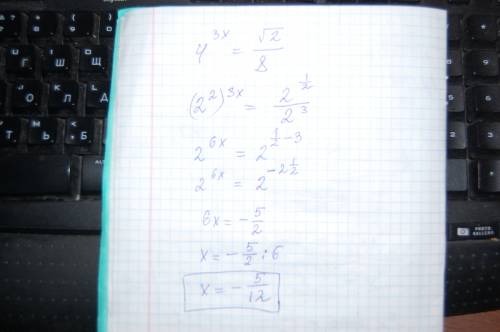 4^{3x} = \frac{\sqrt{2}}{8}
(2^2)^{3x} = \frac{2^{\frac{1}{2}}}{2^3}
2^{6x} = 2^{\frac{1}{2}-3}
2^{6x} = 2^{-2\frac{1}{2}}
6x = -\frac{5}{2}
x = -\frac{5}{2} : 6
x = -\frac{5}{12}
Г Ш
О Л Д
Ь
PHOTO
GALLERY